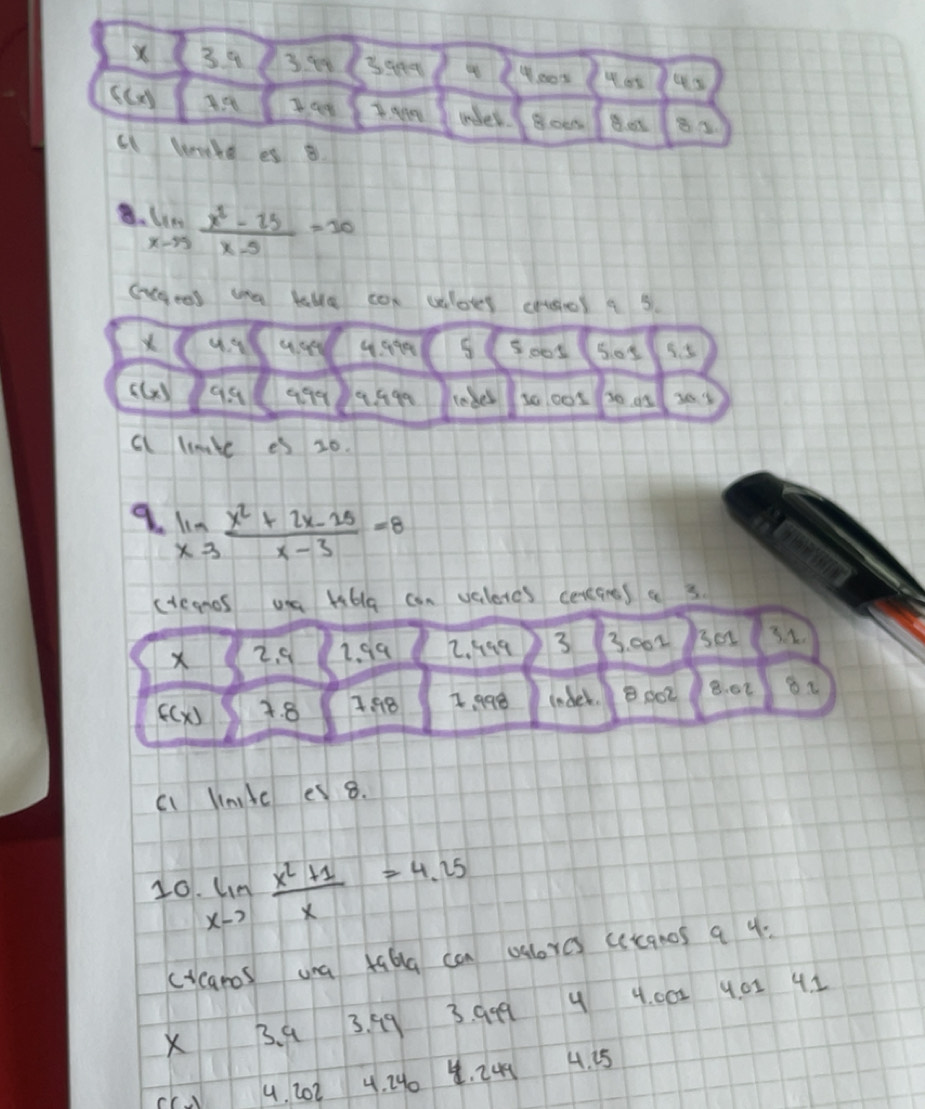 x 3.9 3.99 3.999 4 4.001 4.01 4.1
f(x) 7.9 7.99 7.999 indet. 8.001 8.01 8.1
El limite es 8.
8. lim x²-25 = 10
x→5 x-5
Creamos una tabla con valores cercanos a 5.
x 4.9 4.99 4.999 5 5.001 5.01 5.1
f(x) 9.9 9.99 9.999 indet 10.001 10.01 10.1
El limite es 10.
9. lim x² + 2x-15 = 8
x→3 x-3
Creamos una tabla con valores cercanos a 3.
x 2.9 2.99 2.999 3 3.001 3.01 3.1.
f(x) 7.8 7.98 7.998 indet. 8.002 8.02 8.1
El limite es 8.
10. lim x²+1 = 4.25
x→ x
creamos una tabla con valores cercanos a 4.
x 3.9 3.99 3.999 4 4.001 4.01 4.1
f(x) 4.202 4.240 4.249 4.25